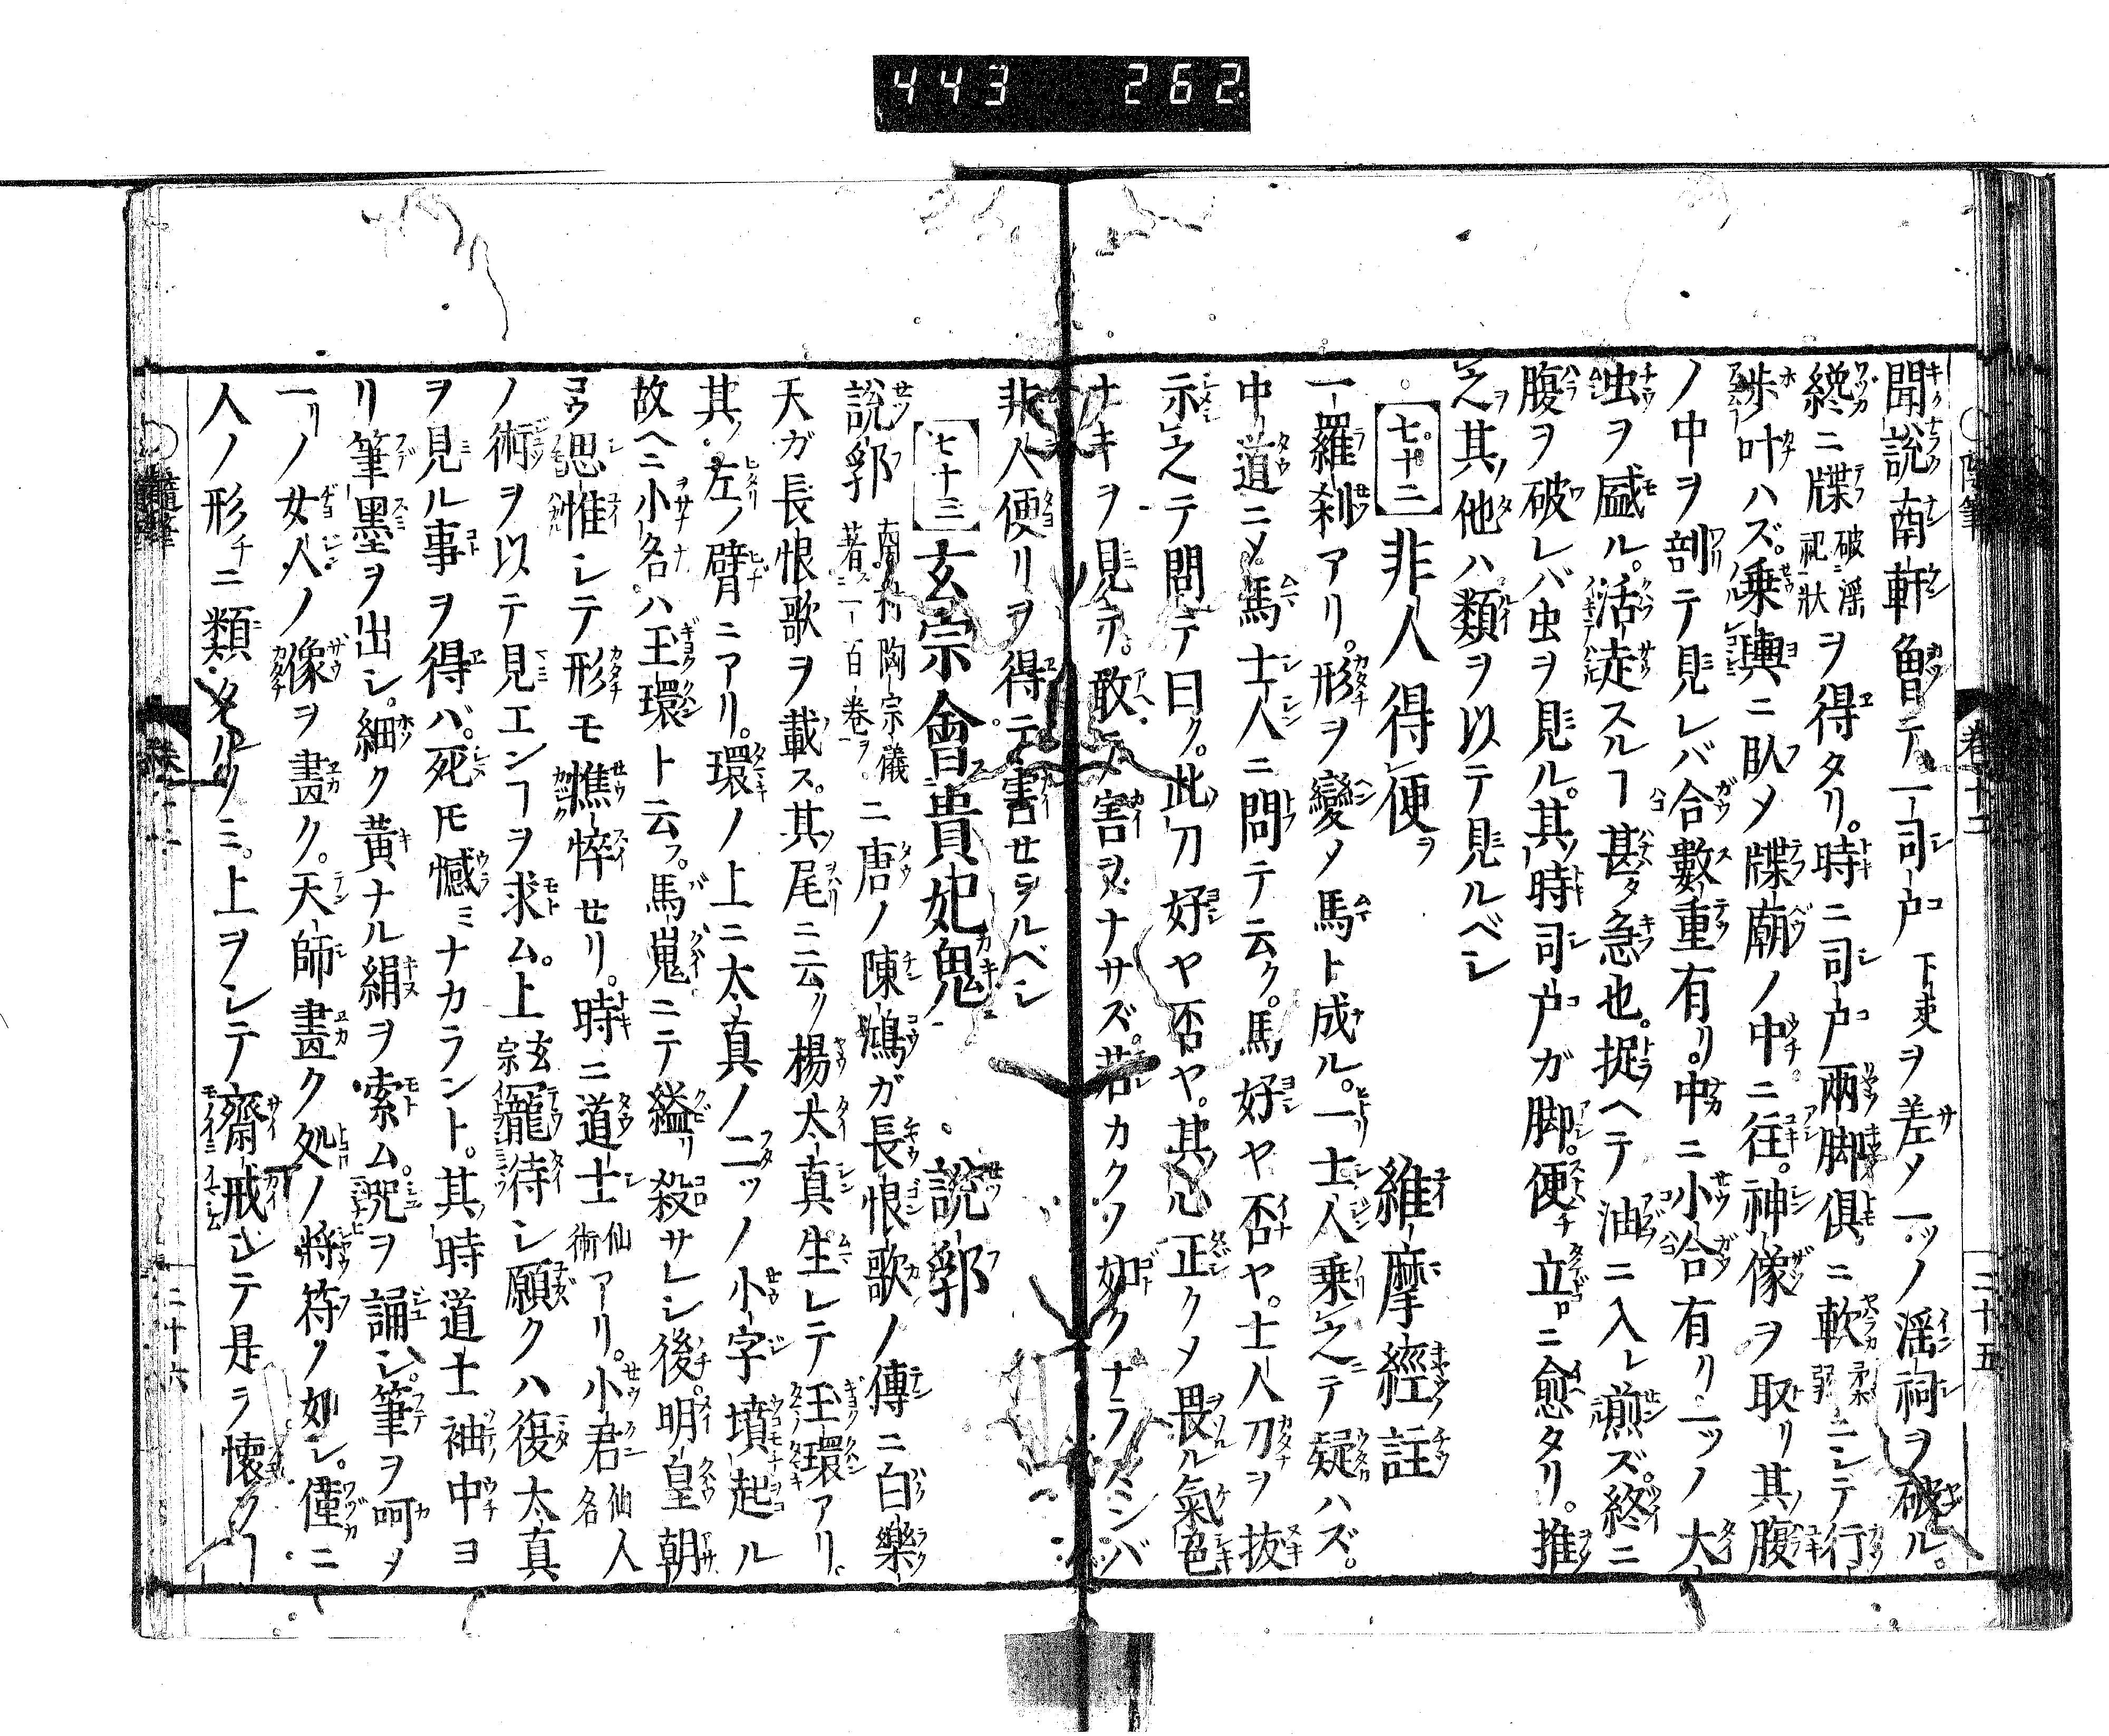 443 262
聞説南軒曾テ一司戸下吏ヲ差メ一ツノ淫祠ヲ破ル。
纔ニ牒破ニ淫祀一状ヲ得タリ。時ニ司戸兩脚倶ニ軟柔弱ニシテ行
歩叶ハズ。乗輿ニ臥メ牒廟ノ中ニ往。神像ヲ取リ其腹
ノ中ヲ剖テ見レバ合數重有リ。中ニ小合有リ一ツノ大
虫ヲ盛ル。活走スルヿ甚タ急也。捉ヘテ油ニ入レ煎ズ。終ニ
腹ヲ破レバ虫ヲ見ル。其時司戸ガ脚。便チ立ロニ愈タリ。推
之其他ハ類ヲ以テ見ルベシ
七十二 非人得便ヲ 維摩經註
一羅刹アリ。形ヲ變メ馬ト成ル。一士人乗之テ疑ハズ。
中道ニメ馬士人ニ問テ云ク。馬好ヤ否ヤ。士人刀ヲ抜
示之テ問テ曰ク。此刀好ヤ否ヤ。其心正クメ畏ル氣色
ナキヲ見テ。敢テ害ヲナサズ。若カクノ如クナラズンバ
非人便リヲ得テ害セラルベシ
七十三 玄宗會貴妃鬼 説郛
説郛南村陶宗儀著ス一百卷ヲニ唐ノ陳鴻ガ長恨歌ノ傳ニ白樂
天ガ長恨歌ヲ載ス。其尾ニ云ク楊太真生レテ玉環アリ。
其左ノ臂ニアリ。環ノ上ニ太真ノ二ツノ小字墳起ル
故ヘニ小名ハ玉環ト云フ。馬嵬ニテ縊リ殺サレシ後。明皇朝
ユウ思惟シテ形モ憔悴セリ。時ニ道士仙術アリ。小君仙人名
ノ術ヲ以テ見エンヿヲ求ム。上玄宗寵待シ願クハ復太真
ヲ見ル事ヲ得バ。死トモ憾ミナカラント。其時道士袖中ヨ
リ筆墨ヲ出シ。細ク黄ナル絹ヲ索ム。咒ヲ誦シ。筆ヲ呵メ
一リノ女人ノ像ヲ畫ク。天師畫ク処ノ將符ノ如シ。僅ニ
人ノ形チニ類タルノミ。上ヲシテ齋戒シテ是ラ懷クヿ